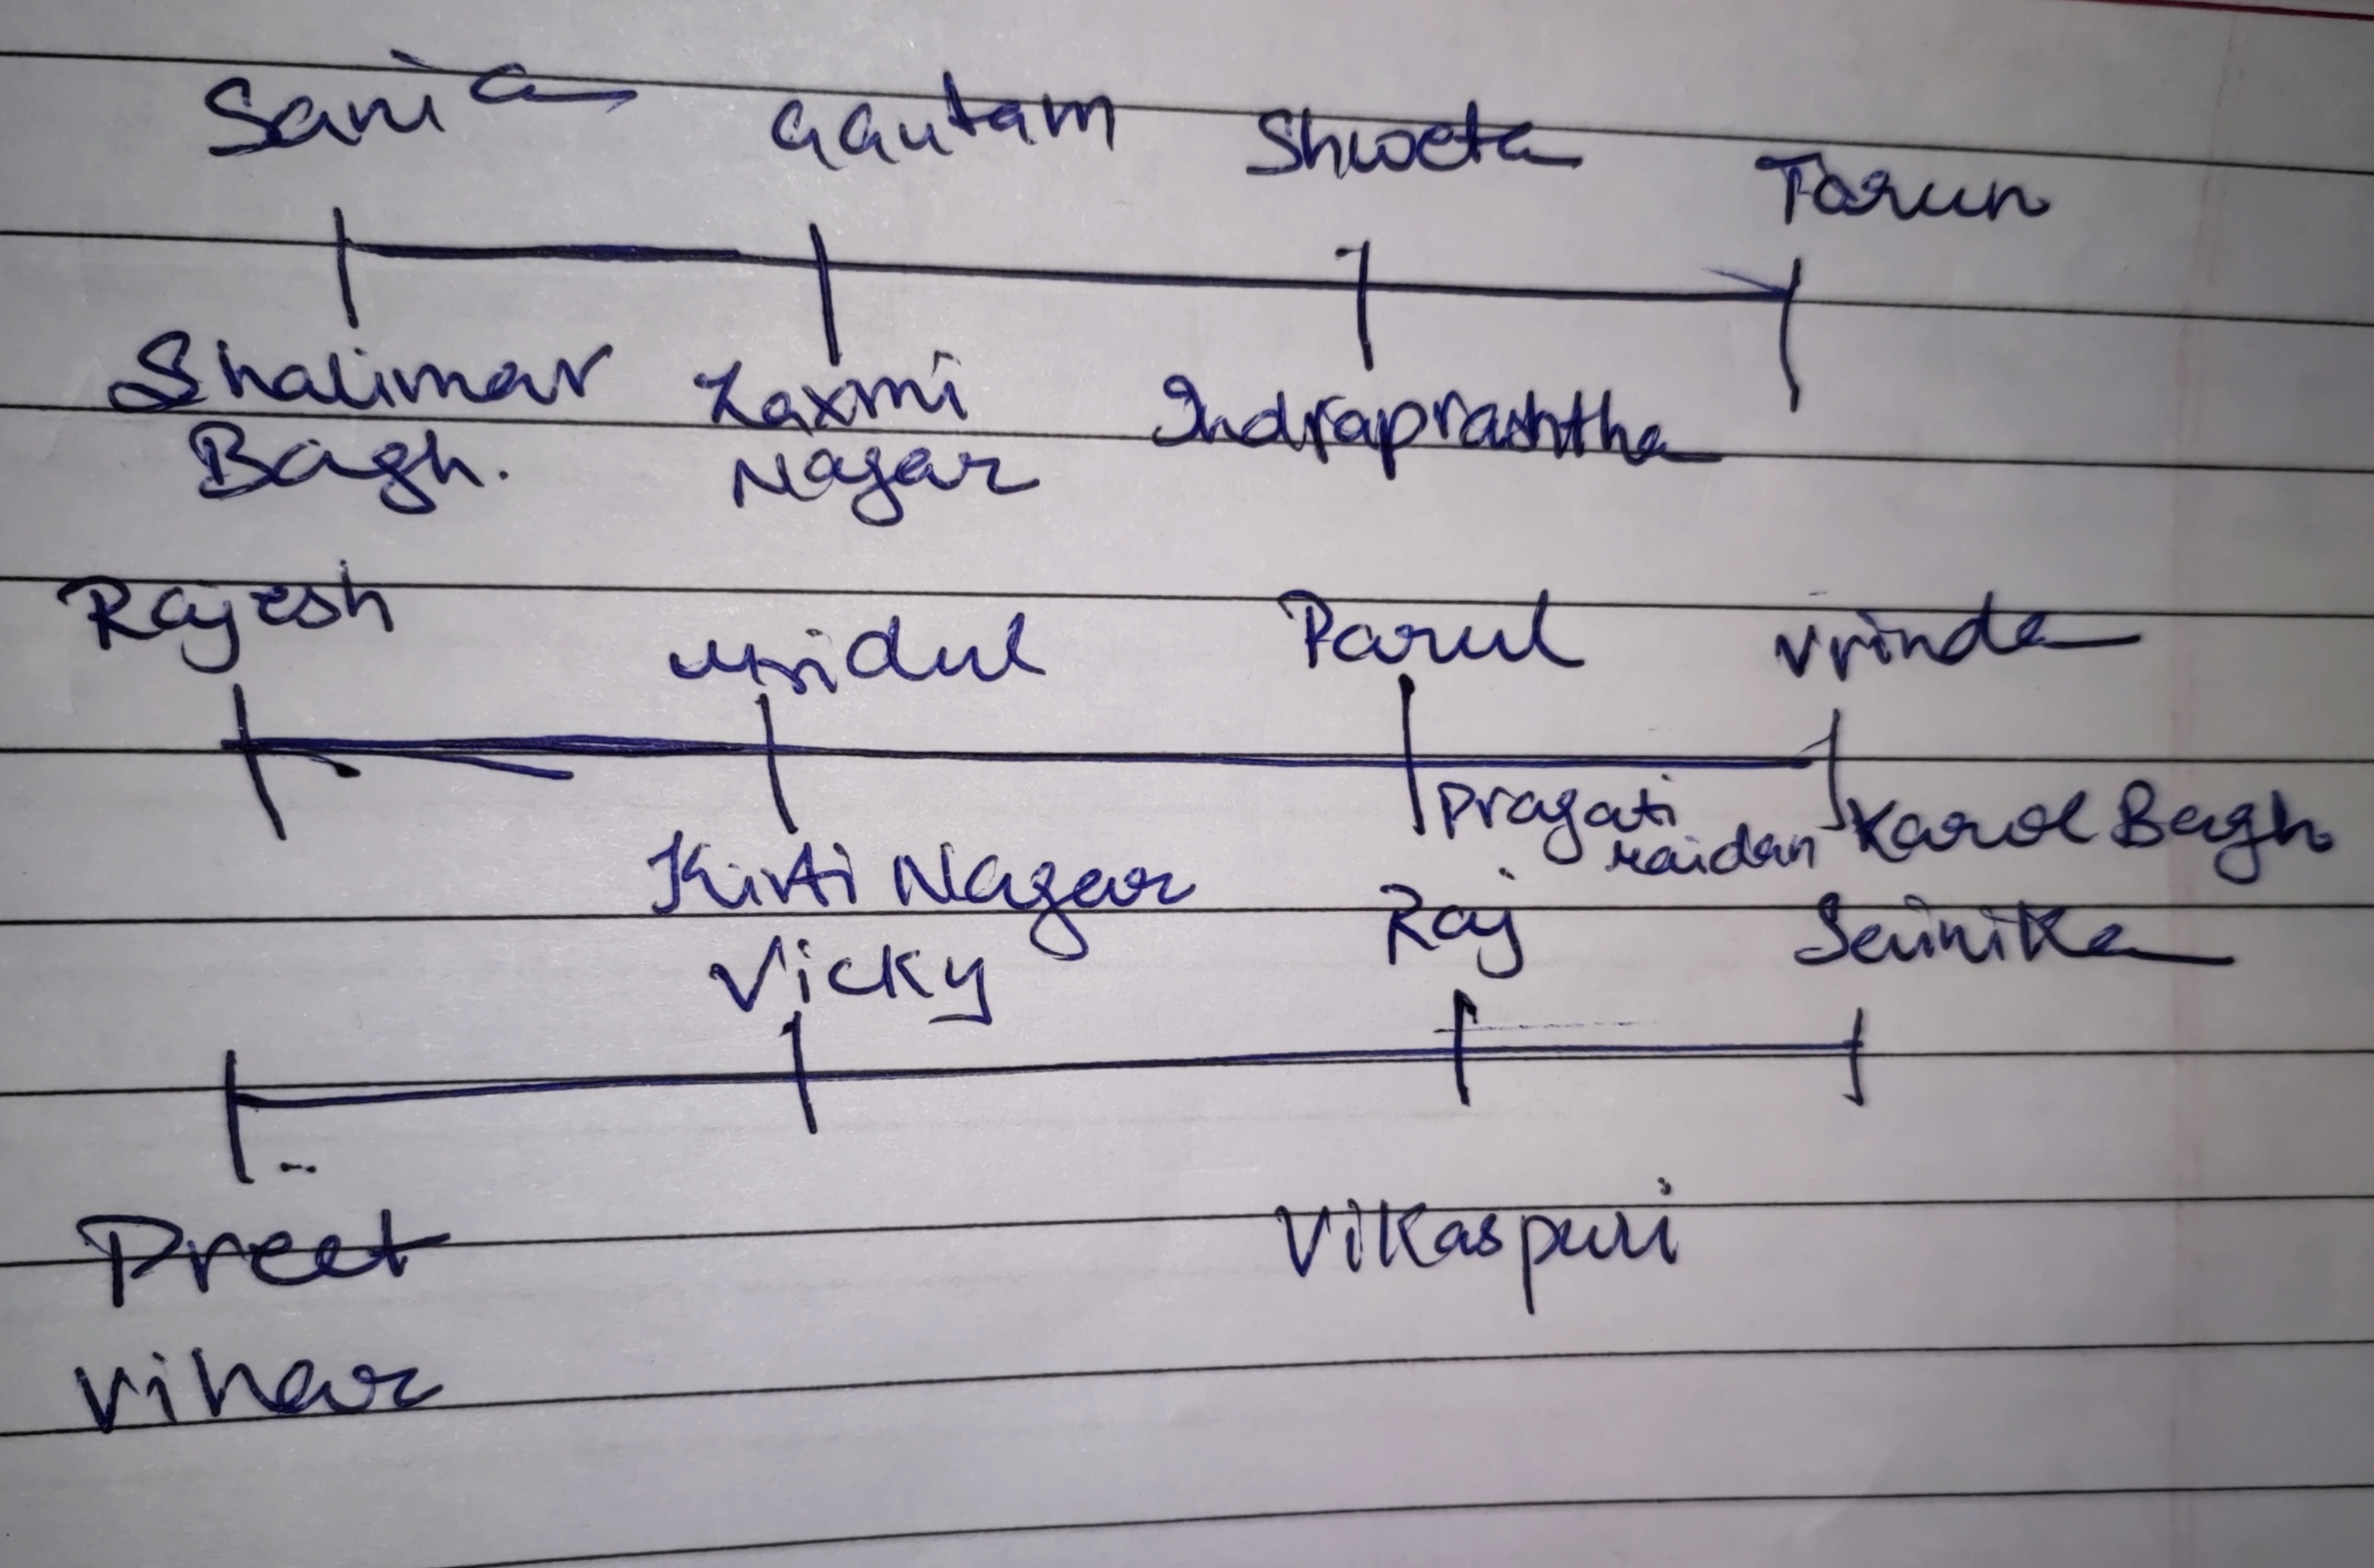 Sania Gautam Shweta Tarun
Shalimar Laxmi Indraprashtha
Bagh. Nagar
Rajesh Mridul Parul Vrinda
Pragati Karol Bagh
Maidan
Kirti Nagar
Vicky Raj Sainika
Preet Vikaspuri
Vihar